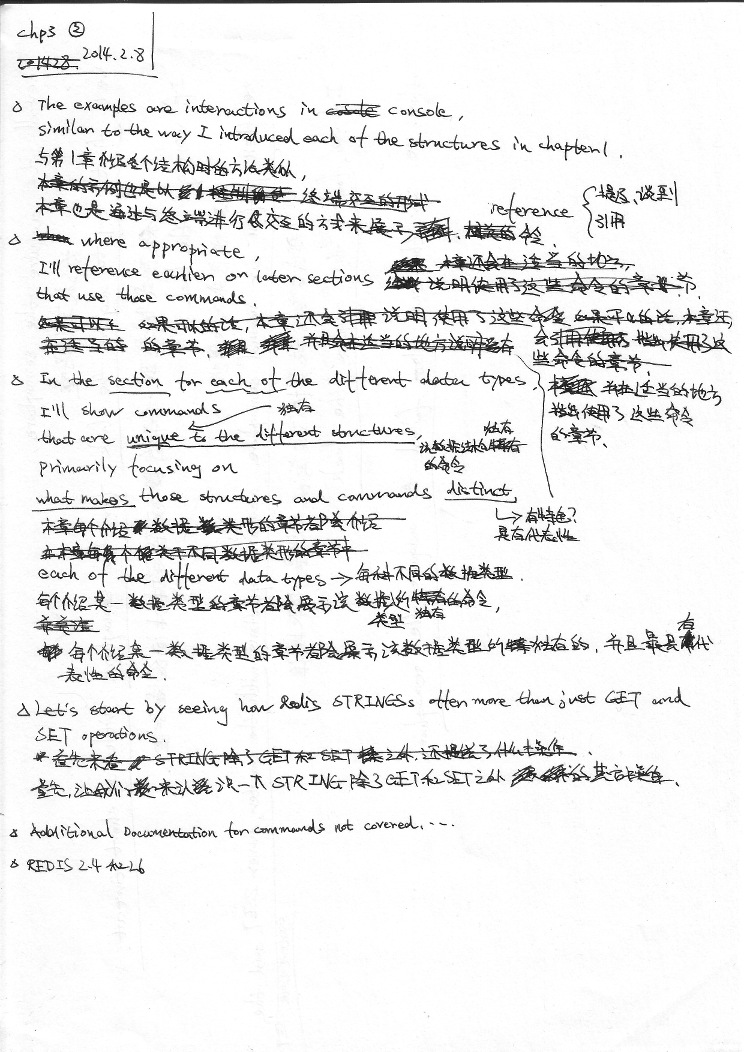 chp3 ②
201428 2014.2.8
The examples are interactions in console,
similar to the way I introduced each of the structures in chapter 1.
与第1章介绍各个结构时的方法类似,
终端交互的形式
本章也是通过与终端进行交互的方式来展示命令.
reference { 提及、谈到
引用
where appropriate,
I'll reference earlier or later sections
本章还会在适当的地方,
that use those commands.
说明使用了这些命令的章节.
如果可以的话,本章还会引用 说明 使用了这些命令
如果可以的话,本章还
会引用 使用了这
些命令的章节.
In the section for each of the different data types
并在适当的地方
I'll show commands
独有
使用了这些命令
的章节.
that are unique to the different structures,
独有
的命令
primarily focusing on
what makes those structures and commands distinct
↳ 有特色?
具有代表性
本章每个介绍数据类型的章节都会介绍
each of the different data types → 每种不同的数据类型.
每个介绍某一数据类型的章节都会展示该数据所特有的命令,
类型 独有
每个介绍某一数据类型的章节都会展示该数据类型的独有的,并且最具有代
表性的命令.
Let's start by seeing how Redis STRINGSs offer more than just GET and
SET operations.
首先来看 STRING 除了GET和SET之外,还提供了什么操作.
首先,让我们来认识一下STRING除了GET和SET之外的其它操作.
Additional Documentation for commands not covered....
REDIS 2.4 和 2.6